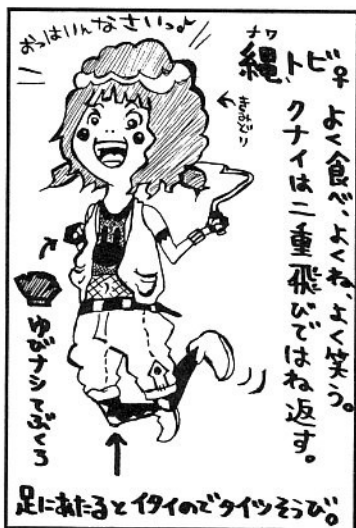 おっはいんなさいっ♪
ナワ
縄、トビ♀
よく食べ、よくね、よく笑う。
クナイは二重飛びではね返す。
きみどり
ゆびナシてぶくろ
足にあたるとイタイのでタイツそうび。